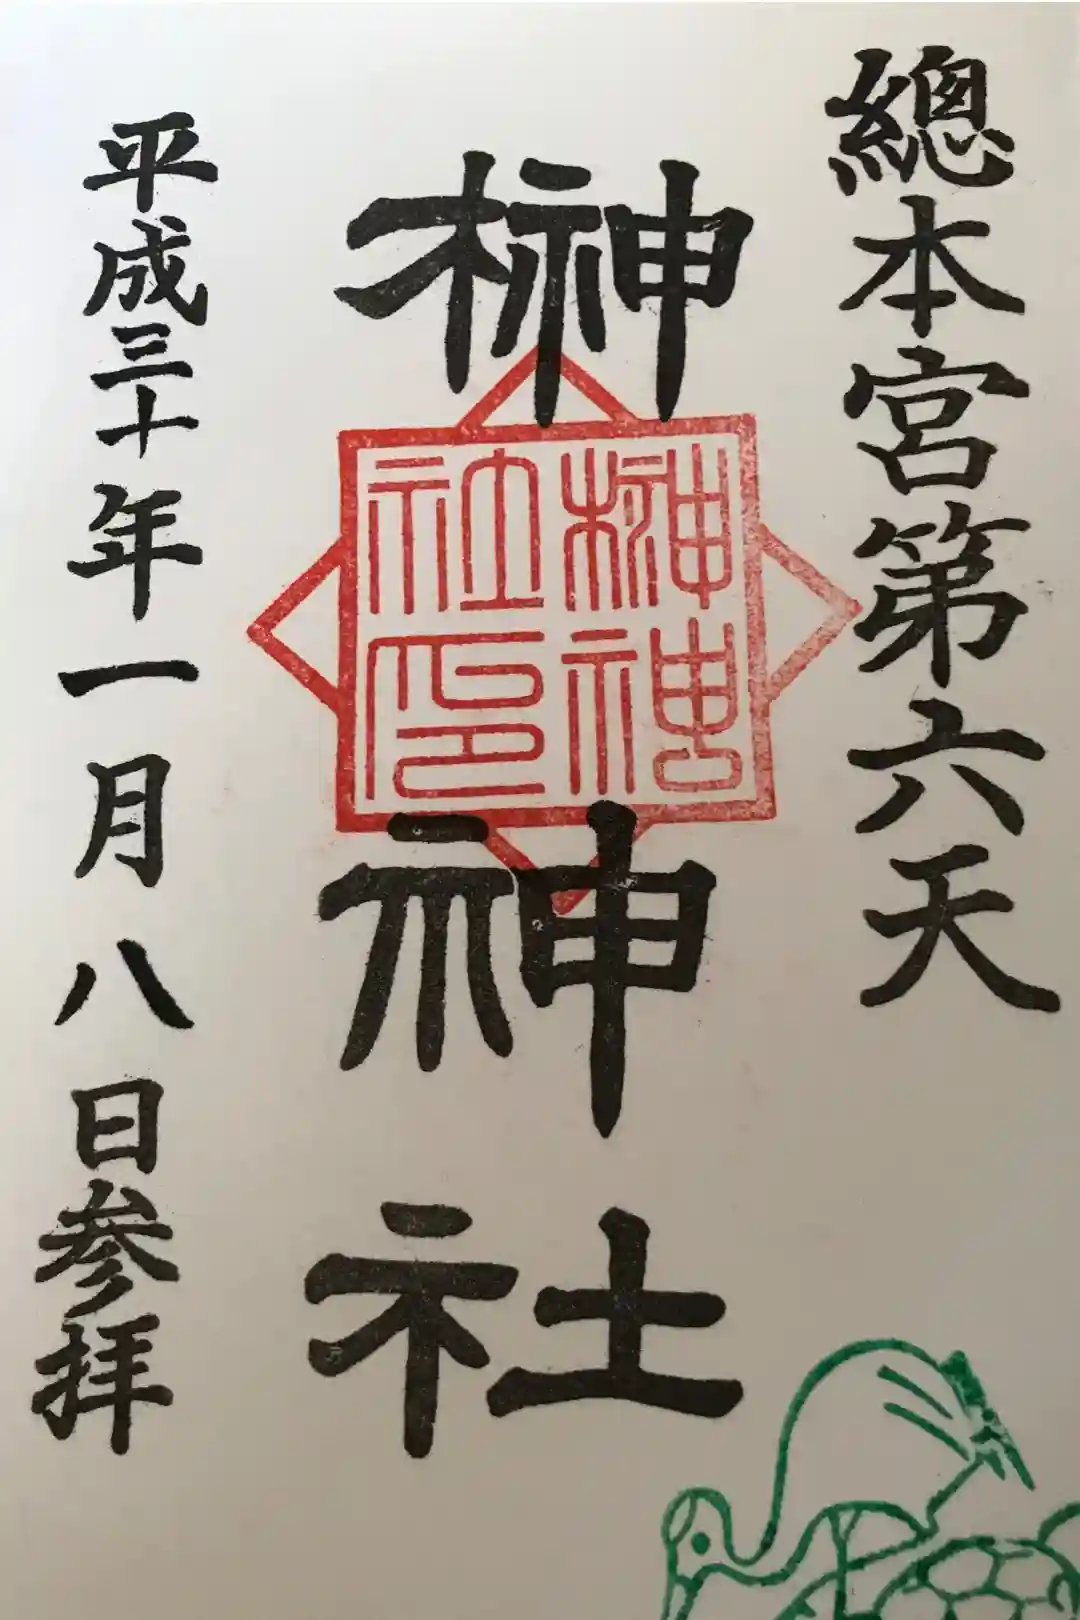 總本宮第六天
榊神社
榊神社印
平成三十年一月八日参拝